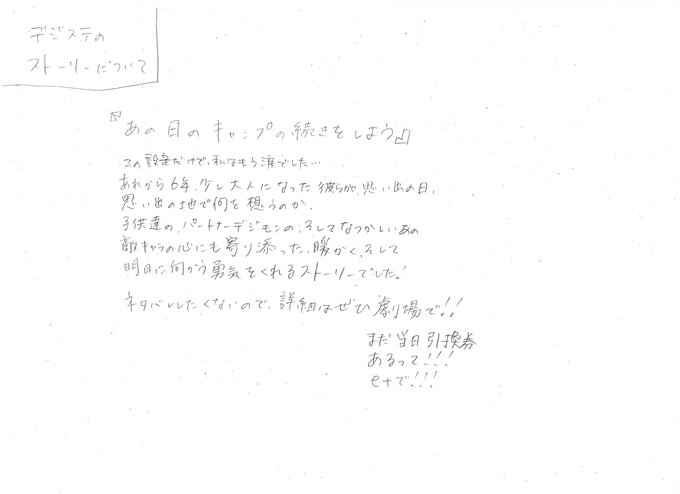 デジステの
ストーリーについて
『あの日のキャンプの続きをしよう』
この設定だけで、私はもう涙でした…
あれから6年、少し大人になった彼らが、思い出の日、
思い出の地で何を想うのか、
子供達の、パートナーデジモンの、そしてなつかしいあの
敵キャラの心にも寄り添った、暖かく、そして
明日に向かう勇気をくれるストーリーでした!
ネタバレしたくないので、詳細はぜひ劇場で!!
まだ当日引換券
あるって!!!
e+で!!!